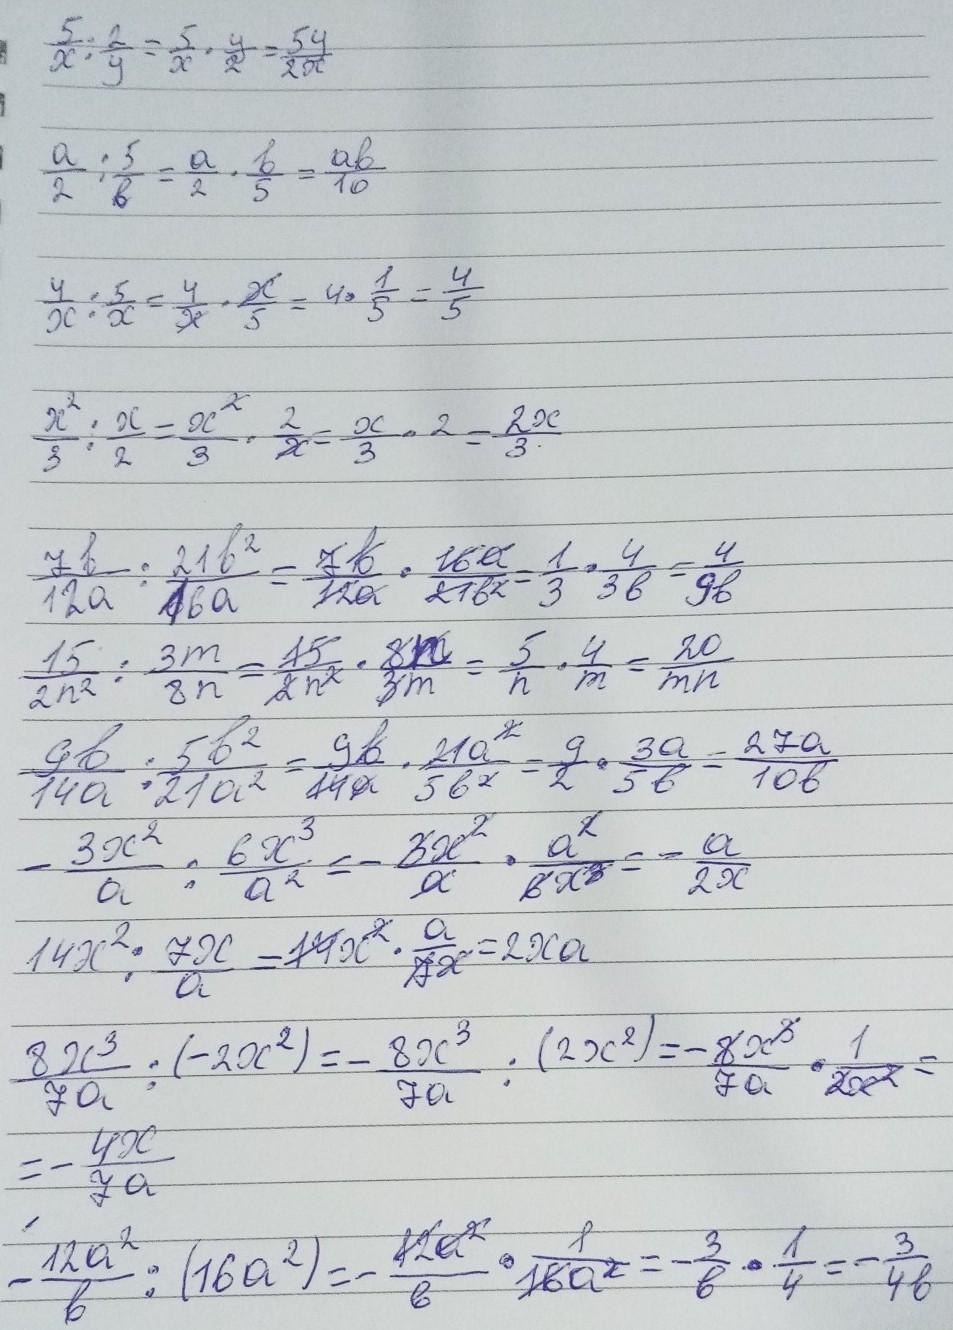 5/x : 2/y = 5/x · y/2 = 5y/2x
a/2 : 5/b = a/2 · b/5 = ab/10
4/x : 5/x = 4/x · x/5 = 4 · 1/5 = 4/5
x²/3 : x/2 = x²/3 · 2/x = x/3 · 2 = 2x/3
7b/12a : 21b²/16a = 7b/12a · 16a/21b² = 1/3 · 4/3b = 4/9b
15/2n² : 3m/8n = 15/2n² · 8n/3m = 5/n · 4/m = 20/mn
9b/14a : 5b²/21a² = 9b/14a · 21a²/5b² = 9/2 · 3a/5b = 27a/10b
- 3x²/a : 6x³/a² = - 3x²/a · a²/6x³ = - a/2x
14x² : 7x/a = 14x² · a/7x = 2xa
8x³/7a : (-2x²) = - 8x³/7a : (2x²) = - 8x³/7a · 1/2x² =
= - 4x/7a
- 12a²/b : (16a²) = - 12a²/b · 1/16a² = - 3/b · 1/4 = - 3/4b